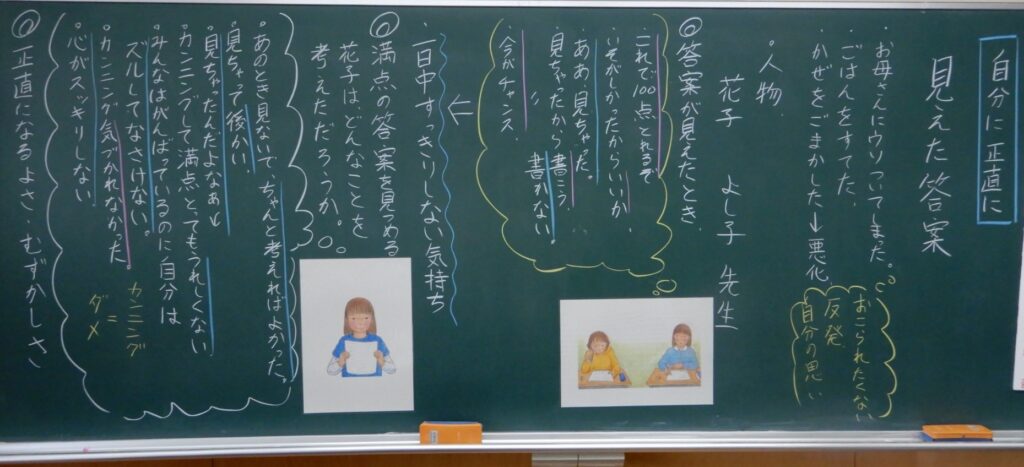 自分に正直に
見えた答案
・お母さんにウソついてしまった。
・ごはんをすてた。
・かぜをごまかした→悪化
おこられたくない
反発
自分の思い
人物
花子 よし子 先生
◎答案が見えたとき、
・これで100点とれるぞ
・いそがしかったからいいか
・ああ、見ちゃだ。
・見ちゃったから書こう。
書かない。
・今がチャンス
↓
・一日中すっきりしない気持ち
◎満点の答案を見つめる
花子は、どんなことを
考えただろうか。
・あのとき見ないで、ちゃんと考えればよかった。
・見ちゃって後かい
・見ちゃったんだよなぁ↓
・カンニングして満点とってもうれしくない
・みんなはがんばっているのに自分は
ズルしてなさけない。
・カンニング気づかれなかった。
・心がスッキリしない
カンニング
=
ダメ
◎正直になるよさ・むずかしさ